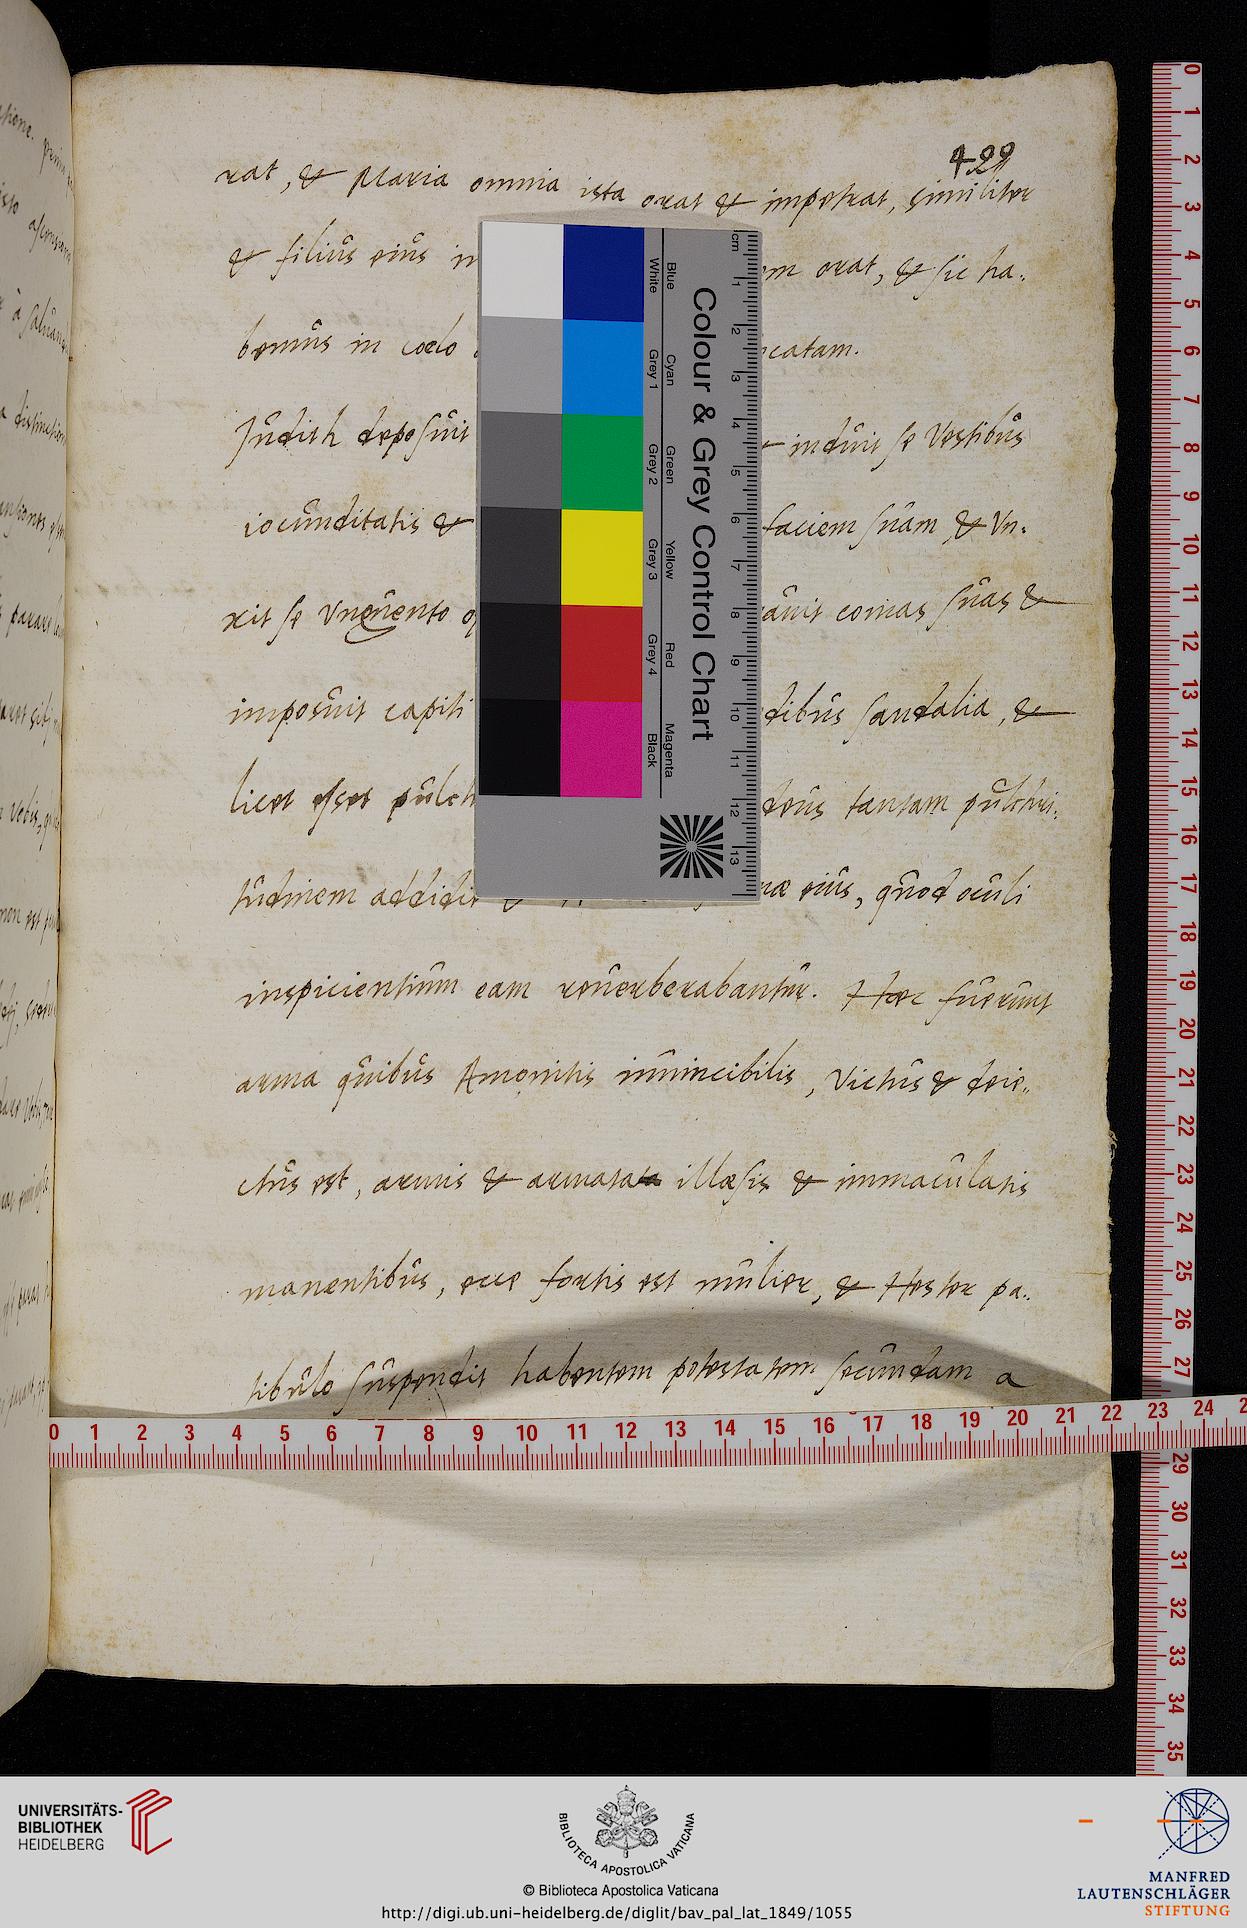 422
rat, & Maria omnia ista orat & impetrat, similiter
& filius eius orat, & sic ha-
bemus in coelo
Judith deposuit induit se Vestibus
iocunditatis & faciem suam & Vn-
xit se Vnguento comas suas &
imposuit capiti sandalia, &
licet esset deus tantam pulchri-
tudinem addidit eius, quod oculi
inspicientium eam reuerberabantur. Haec fuerunt
arma quibus Amonitis inuincibilis, Victus & deie-
ctus est, armis & armata illaesis & immaculatis
manentibus, ecce fortis est mulier, & Hester pa-
tibulo suspendit habentem potestatem secundam a
Colour & Grey Control Chart
Blue Cyan Green Yellow Red Magenta
White Grey 1 Grey 2 Grey 3 Grey 4 Black
cm 1 2 3 4 5 6 7 8 9 10 11 12 13
0 1 2 3 4 5 6 7 8 9 10 11 12 13 14 15 16 17 18 19 20 21 22 23 24
0 1 2 3 4 5 6 7 8 9 10 11 12 13 14 15 16 17 18 19 20 21 22 23 24 25 26 27 29 30 31 32 33 34 35
UNIVERSITÄTS-
BIBLIOTHEK
HEIDELBERG
BIBLIOTECA APOSTOLICA VATICANA
© Biblioteca Apostolica Vaticana
http://digi.ub.uni-heidelberg.de/diglit/bav_pal_lat_1849/1055
MANFRED
LAUTENSCHLÄGER
STIFTUNG